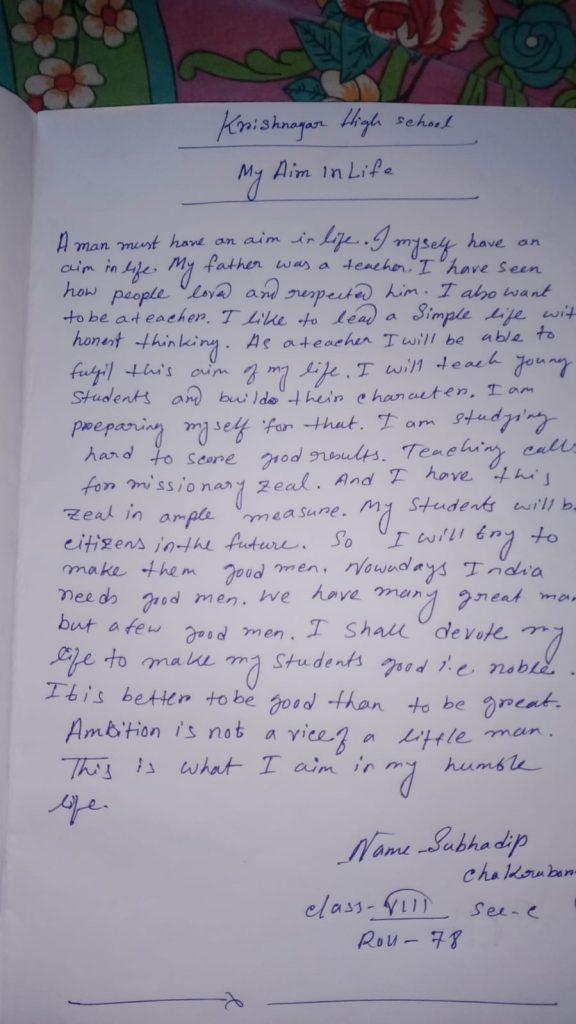 Krishnagar High school
My Aim In Life
A man must have an aim in life. I myself have an
aim in life. My father was a teacher. I have seen
how people loved and respected him. I also want
to be a teacher. I like to lead a Simple life wit
honest thinking. As a teacher I will be able to
fulfil this aim of my life. I will teach young
Students and builds their character. I am
preparing myself for that. I am studying
hard to score good results. Teaching calls
for missionary zeal. And I have this
zeal in ample measure. My Students will b
citizens in the future. So I will try to
make them good men. Nowadays India
needs good men. We have many great man
but a few good men. I Shall devote my
life to make my Students good i.e. noble.
It is better to be good than to be great.
Ambition is not a vice of a little man.
This is what I aim in my humble
life.
Name - Subhadip
class - VIII Sec - c
Roll - 78